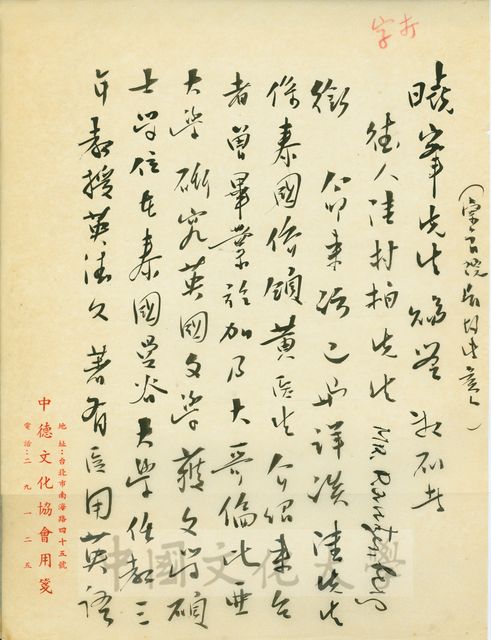 打字
曉峯先生賜鑒 敬啟者
德人陸村拍先生 Mr. Rauten berg
銜 命來訪已面詳談 陸先生
係泰國僑領黃醫生介紹來台
者曾畢業於加拿大哥倫比亞
大學研究英國文學 獲文學碩
士學位在泰國曼谷大學任教三
年教授英德文 著有医用英語
中德文化協會用箋
地址：台北市南海路四十五號
電話：二九一二五
中國文化大學